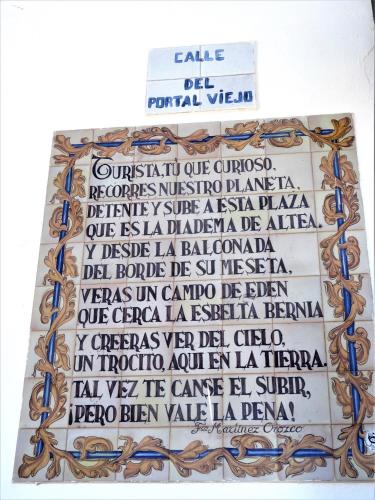 CALLE
DEL
PORTAL VIEJO
TURISTA, TU QUE CURIOSO,
RECORRES NUESTRO PLANETA,
DETENTE Y SUBE A ESTA PLAZA
QUE ES LA DIADEMA DE ALTEA.
Y DESDE LA BALCONADA
DEL BORDE DE SU MESETA,
VERAS UN CAMPO DE EDEN
QUE CERCA LA ESBELTA BERNIA
Y CREERAS VER DEL CIELO,
UN TROCITO, AQUI EN LA TIERRA.
TAL VEZ TE CANSE EL SUBIR,
¡PERO BIEN VALE LA PENA!
Fco Martinez Orozco